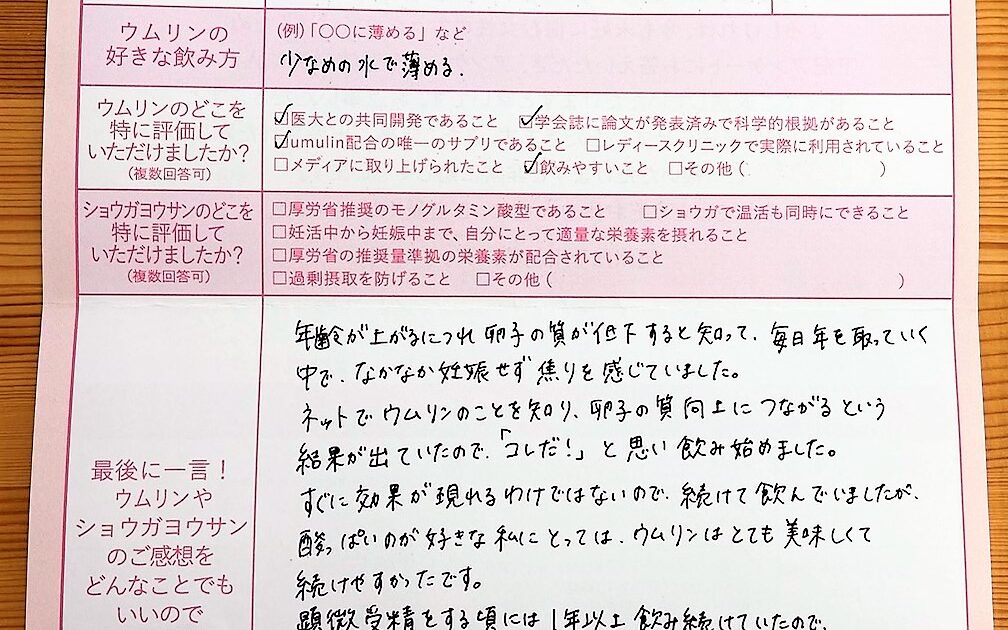 ウムリンの
好きな飲み方
(例)「〇〇に薄める」など
少なめの水で薄める.
ウムリンのどこを
特に評価して
いただけましたか?
(複数回答可)
☑医大との共同開発であること ☑学会誌に論文が発表済みで科学的根拠があること
☑umulin配合の唯一のサプリであること □レディースクリニックで実際に利用されていること
□メディアに取り上げられたこと ☑飲みやすいこと □その他( )
ショウガヨウサンのどこを
特に評価して
いただけましたか?
(複数回答可)
□厚労省推奨のモノグルタミン酸型であること □ショウガで温活も同時にできること
□妊活中から妊娠中まで、自分にとって適量な栄養素を摂れること
□厚労省の推奨量準拠の栄養素が配合されていること
□過剰摂取を防げること □その他( )
最後に一言!
ウムリンや
ショウガヨウサン
のご感想を
どんなことでも
いいので
年齢が上がるにつれ卵子の質が低下すると知って、毎日年を取っていく
中で、なかなか妊娠せず焦りを感じていました。
ネットでウムリンのことを知り、卵子の質向上につながるという
結果が出ていたので、「コレだ!」と思い飲み始めました。
すぐに効果が現れるわけではないので、続けて飲んでいましたが、
酸っぱいのが好きな私にとっては、ウムリンはとても美味しくて
続けやすかったです。
顕微受精をする頃には1年以上飲み続けていたので、